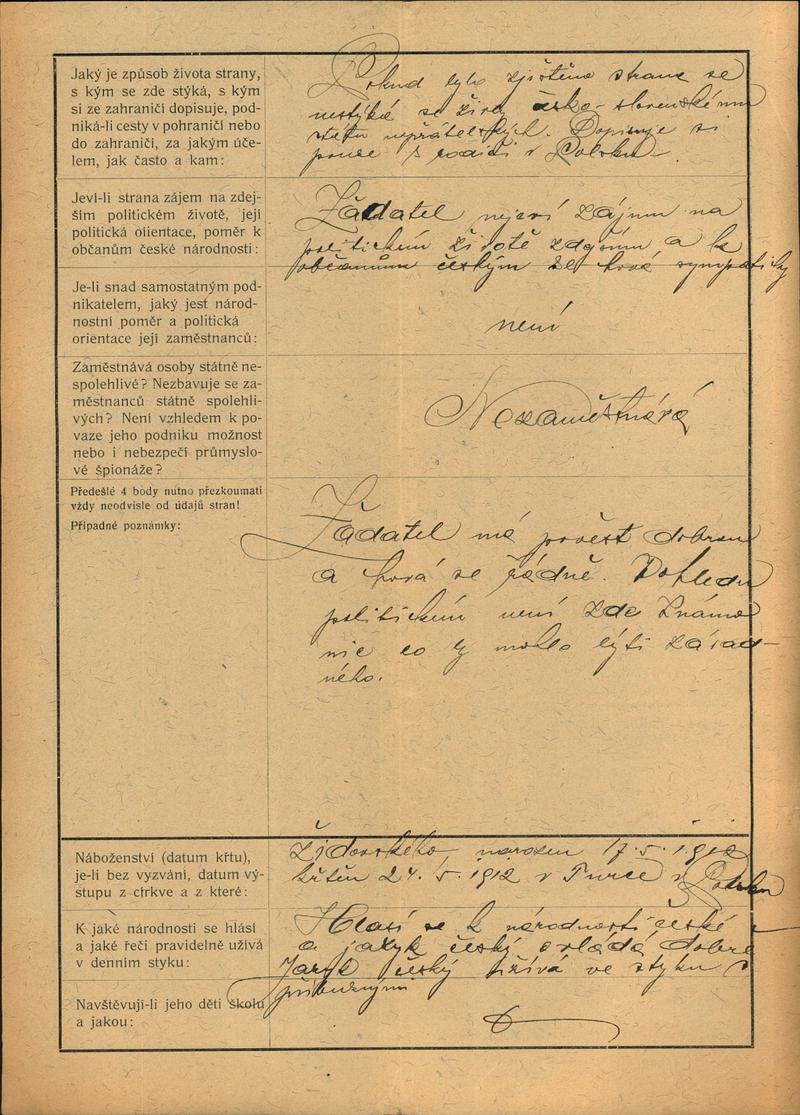 Jaký je způsob života strany,
s kým se zde stýká, s kým
si ze zahraničí dopisuje, pod-
niká-li cesty v pohraničí nebo
do zahraničí, za jakým úče-
lem, jak často a kam:
Pokud bylo zjištěno strana se
nestýká se živly česko-slovenskému
státu nepřátelských. Dopisuje si
pouze s rodiči v Polsku.
Jeví-li strana zájem na zdej-
ším politickém životě, její
politická orientace, poměr k
občanům české národnosti:
Žadatel nejeví zájmu na
politickém životě zdejším a ke
občanům českým se chová sympaticky
Je-li snad samostatným pod-
nikatelem, jaký jest národ-
nostní poměr a politická
orientace její zaměstnanců:
není
Zaměstnává osoby státně ne-
spolehlivé? Nezbavuje se za-
městnanců státně spolehli-
vých? Není vzhledem k po-
vaze jeho podniku možnost
nebo i nebezpečí průmyslo-
vé špionáže?
Nezaměstnává
Předešlé 4 body nutno přezkoumati
vždy neodvisle od údajů stran!
Případné poznámky:
Žadatel má pověst dobrou
a chová se řádně. Pohledu
politickém není zde známo
nic co by mohlo býti závad-
ného.
Náboženství (datum křtu),
je-li bez vyzvání, datum vý-
stupu z církve a z které:
Židovského narozen 17. 5. 1912
křtěn 24. 5. 1912 v Turce v Polsku
K jaké národnosti se hlásí
a jaké řeči pravidelně užívá
v denním styku:
Hlásí se k národnosti české
a jazyk český ovládá dobře
Jazyk český užívá ve styku s
příbuznými
Navštěvují-li jeho děti školu
a jakou: